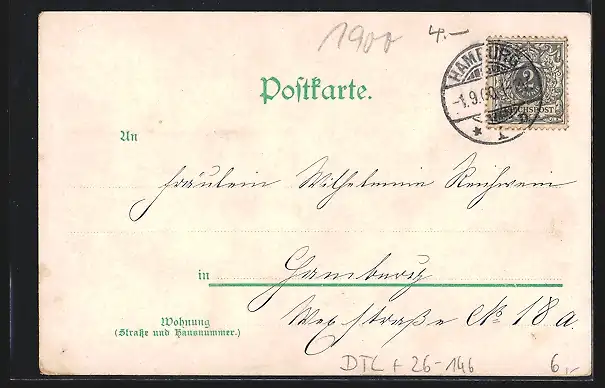 1900 4.-
HAMBURG
-1.9.00
1
2
REICHSPOST
Postkarte.
An
Fräulein Wilhelmine Reichwein
in Hamburg
Wohnung
(Straße und Hausnummer.)
Wexstraße No 18 a.
DTL + 26-146 6,-